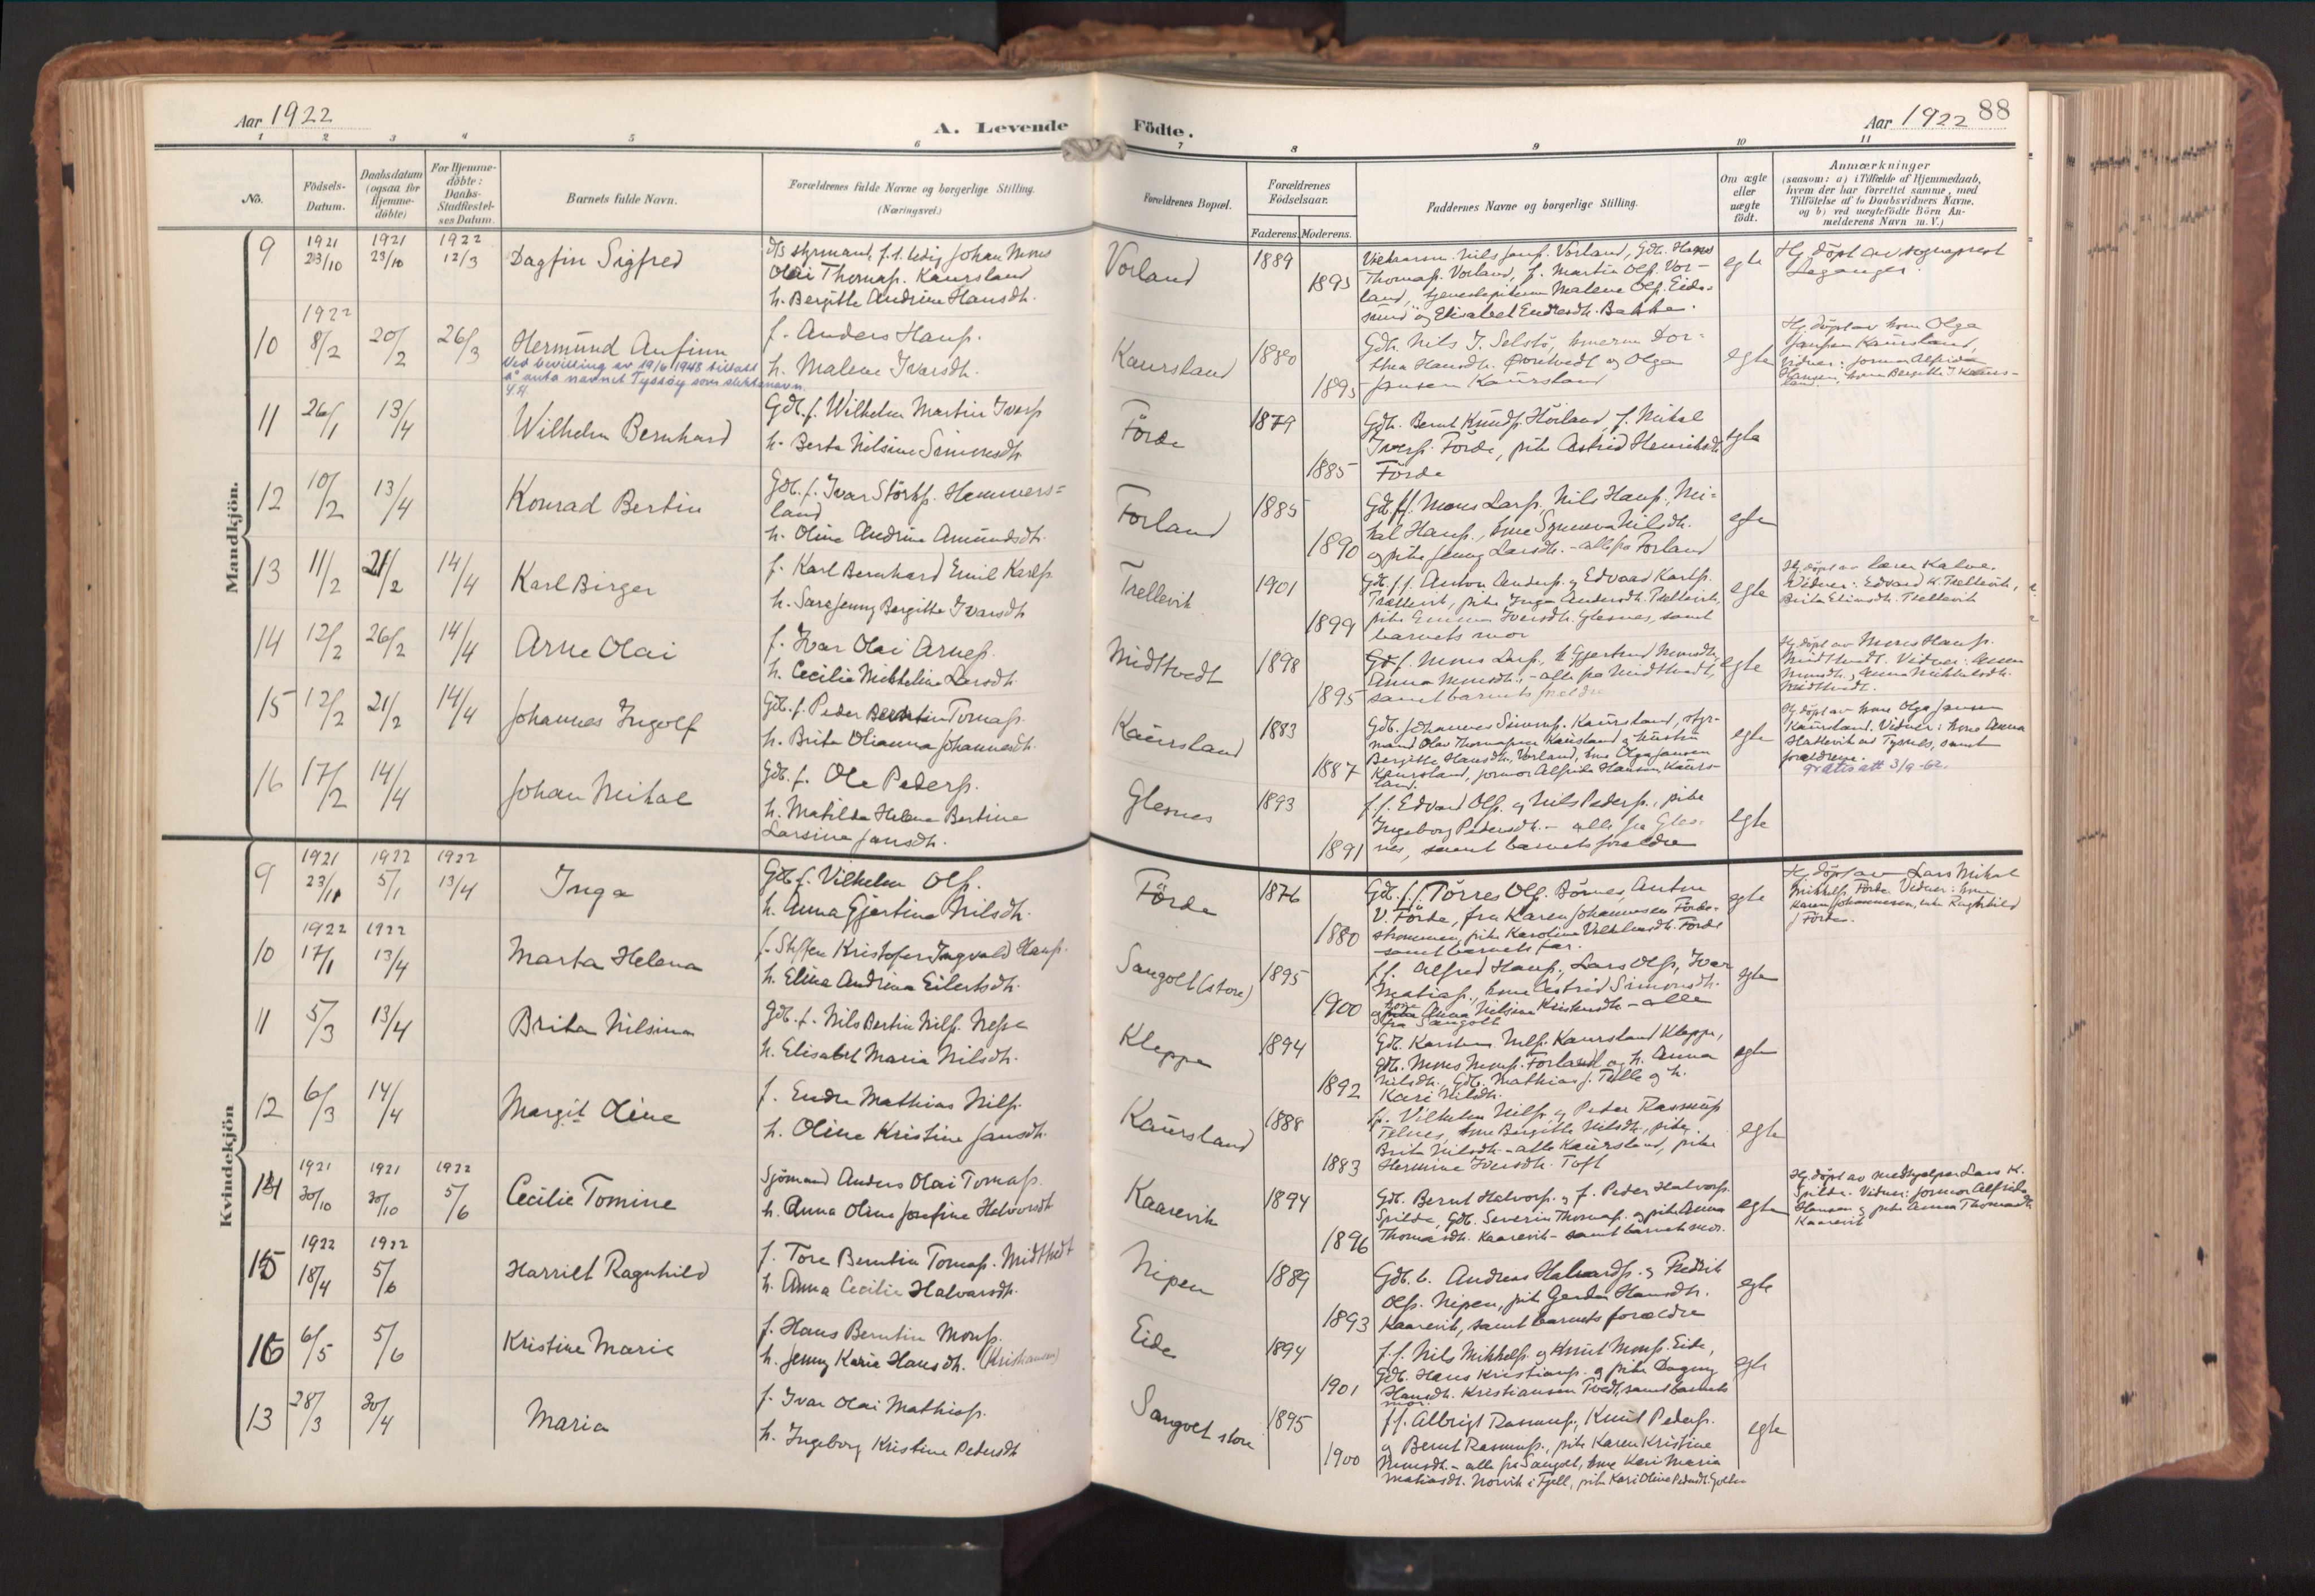 Aar 1922
A. Levende
Födte.
Aar 1922
88
1 2 3 4 5 6 7 8 9 10 11
No.
Födsels-Datum.
Daabsdatum (ogsaa for Hjemme-döbte)
For Hjemme-döbte: Daabs-Stadfæstel-ses Datum.
Barnets fulde Navn.
Forældrenes fulde Navne og borgerlige Stilling. (Næringsvei.)
Forældrenes Bopæl.
Forældrenes Födselsaar.
Faderens. Moderens.
Faddernes Navne og borgerlige Stilling.
Om ægte eller uægte födt.
Anmærkninger
(saasom: a) i Tilfælde af Hjemmedaab, hvem der har forrettet samme, med Tilföielse af to Daabsvidners Navne, og b) ved uægtefödte Börn Anmelderens Navn m. V.)
Mandkjön.
9 1921 23/10 1921 23/10 1922 12/3 Dagfin Sigfred
Olai Thomass. Kaursland
h. Bergitte Andrine Hansdh.
Vorland 1889 1893
Thomass. Vorland, f. Martin Ols. Vor-
land, Malene Ols. Eide-
sund og Elisabet Endresdh. Bakke.
egte
Hj. döpt av sogneprest
10 1922 8/2 20/2 26/3 Hermund Anfinn
Ved bevilling av 19/6 1948 tillatt
å anta navnet Tyssöy som slektsnavn.
f. Anders Hanss.
h. Malene Ivarsdh.
Kaursland 1880 1895
Gdb. Nils J. Selstö,
thea Hansdh. og Olga
Jansen Kaursland
egte
Hj. döpt av kone Olga
Jansen Kaursland,
Vidner: jormor Alfrida
Hansen, kone Bergitte J. Kaurs-
land.
11 26/1 13/4 Wilhelm Bernhard
Gdb. f. Wilhelm Martin Ivers.
h. Berta Nilsine Simonsdh.
Förde 1879 1885
Gdb. Bernt Knuds. Hörland, f. Mikal
Ivers. Förde, pike Astrid Henriksdh.
Förde
egte
12 10/2 13/4 Konrad Bertin
Gdb. f. Ivar Störks. Hemmers=
land
h. Oline Andrine Amundsdh.
Forland 1885 1890
Gdb. ff. Mons Lars., Nils Hans., Mi=
kal Hans., kone Synneva Nilsdh.
og pike Jenny Larsdh. - alle fra Forland
egte
13 11/2 21/2 14/4 Karl Birger
f. Karl Bernhard Emil Karls.
h. Sara Jenny Bergitte Ivarsdh
Trellevik 1901 1899
Gdb. ff. Anton Anders. og Edvard Karls.
Trellevik, pike Inga Andersdh. Trellevik,
pike Emma Iversdh. Glesnes, samt
barnets mor
egte
Hj. döpt av lærer Kalve.
Vidner: Edvard K. Trellevik,
Brita Eliasdh. Trellevik
14 12/2 26/2 14/4 Arne Olai
f. Ivar Olai Arnes.
h. Cecilie Mikkeline Larsdh.
Midttvedt 1898 1895
Gdb. f. Mons Lars., h. Gjertrud Monsdh,
Anna Monsdh. - alle fra Midttvedt,
samt barnets foreldre
egte
Hj. döpt av Mons Hans.
Midttvedt. Vidner:
Monsdh., Anna Mikkelsdh.
Midttvedt.
15 12/2 21/2 14/4 Johannes Ingolf
Gdb. f. Peder Berntin Tomass.
h. Brita Olianna Johannesdh.
Kaursland 1883 1887
Gdb. Johannes Simons. Kaursland, styr-
mand Olav Thomassen Kaursland og hustru
Bergitte Hansdh. Vorland, kone Olga Jansen
Kaursland, jormor Alfrida Hansen Kaurs-
land.
egte
Hj. döpt av kone Olga Jansen
Kaursland. Vidner: kone Anna
Hattevik ad Tysnes, samt
foreldrene.
gratis att 3/9-62.
16 17/2 14/4 Johan Mikal
Gdb. f. Ole Peders.
h. Matilda Helene Bertine
Larsine Jansdh.
Glesnes 1893 1891
f.f. Edvard Ols. og Nils Peders., pike
Ingeborg Pedersdh. - alle fra Gles-
nes, samt barnets foreldre
egte
Kvindekjön
9 1921 23/11 1922 5/1 1922 13/4 Inga
Gdb. f. Vilhelm Ols.
h. Anna Gjertine Nilsdh.
Förde 1876 1880
Gdb. f.f. Törres Ols. Börnes, Anton
V. Förde, fru Karen Johannesen Förde-
strömmen, pike Karoline Vilhelmsdh. Förde
samt barnets far.
egte
Hj. döpt av Lars Mikal
Mikkels. Förde. Vidner: kone
Karen Johannesen, Ragnhild
J. Förde.
10 1922 17/1 1922 13/4 Marta Helena
f. Steffen Kristofer Ingvald Hans.
h. Eline Andrina Eilertsdh.
Sangolt (store) 1895 1900
f.f. Alfred Hans., Lars Ols., Ivar
Matias., kone Astrid Simonsdh.
og kone Anna Nilsine Kristensdh - alle
fra Sangolt
egte
11 5/3 13/4 Brita Nilsina
Gdb. f. Nils Bertin Nils. Nesse
h. Elisabet Maria Nilsdh.
Kleppe 1894 1892
Gdb. Karsten Nils. Kaursland Kleppe,
Gdb. Mons Mons. Forland og h. Anna
Nilsdh., Gdb. Mathias J. Telle og h.
Kari Nilsdh.
egte
12 6/3 14/4 Margit Oline
f. Endre Mathias Nils.
h. Oline Kristine Jansdh.
Kaursland 1888 1883
f. Vilhelm Nils. og Peter Rasmus.
Telnes, kone Bergitte Nilsdh., pike
Brita Nilsdh. - alle Kaursland, pike
Hermine Iversdh. Toft
egte
14 1921 30/10 1921 30/10 1922 5/6 Cecilie Tomine
Sjömand Anders Olai Tomass.
h. Anna Oline Josefine Halvorsdh
Kaarevik 1894 1896
Gdb. Bernt Halvors. og f. Peder Halvors.
Spilde, Gdb. Severin Thomas. og pike Anna
Thomasdh. Kaarevik - samt barnets mor.
egte
Hj. döpt av medhjelper Lars K.
Spilde. Vidner: jormor Alfrida
Hansen og pike Anna Thomasdh
Kaarevik
15 1922 18/4 1922 5/6 Harriet Ragnhild
f. Tore Berntin Tomass. Midttvedt
h. Anna Cecilie Halvorsdh.
Nipen 1889 1893
Gdb. b. Andreas Halvards. og Fredrik
Ols. Nipen, pike Gerda Hansdh.
Kaarevik, samt barnets foreldre
egte
16 6/5 5/6 Kristine Marie
f. Hans Berntin Mons.
h. Jenny Karie Hansdh. (Kristiansen)
Eide 1894 1901
f.f. Nils Mikkels. og Knut Mons. Eide,
Gdb. Hans Kristians. og pike Dagny
Hansdh. Kristiansen Tvedt, samt barnets
mor.
egte
13 28/3 30/4 Maria
f. Ivar Olai Mathias.
h. Ingeborg Kristine Pedersdh
Sangolt store 1895 1900
ff. Albrigt Rasmus., Knut Peders.
og Bernt Rasmus., pike Karen Kristine
Monsdh. - alle fra Sangolt, kone Kari Maria
Matiasdh. Norvik i Fjell, pike Kari Oline Pedersdh.
egte